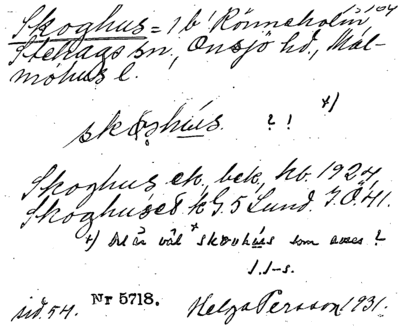 Skoghus = 1 b Rönneholm,
Stehags sn, Onsjö hd, Mal-
möhus l.
x)
skoghús. ? !
Skoghus ek, bek, kb. 1924
Skoghuset k G. 5 Lund. J.Ö. 41.
x) Det är väl *skouhús som avses?
J. J-s.
sid. 54. Nr 5718. Helge Persson 1931.